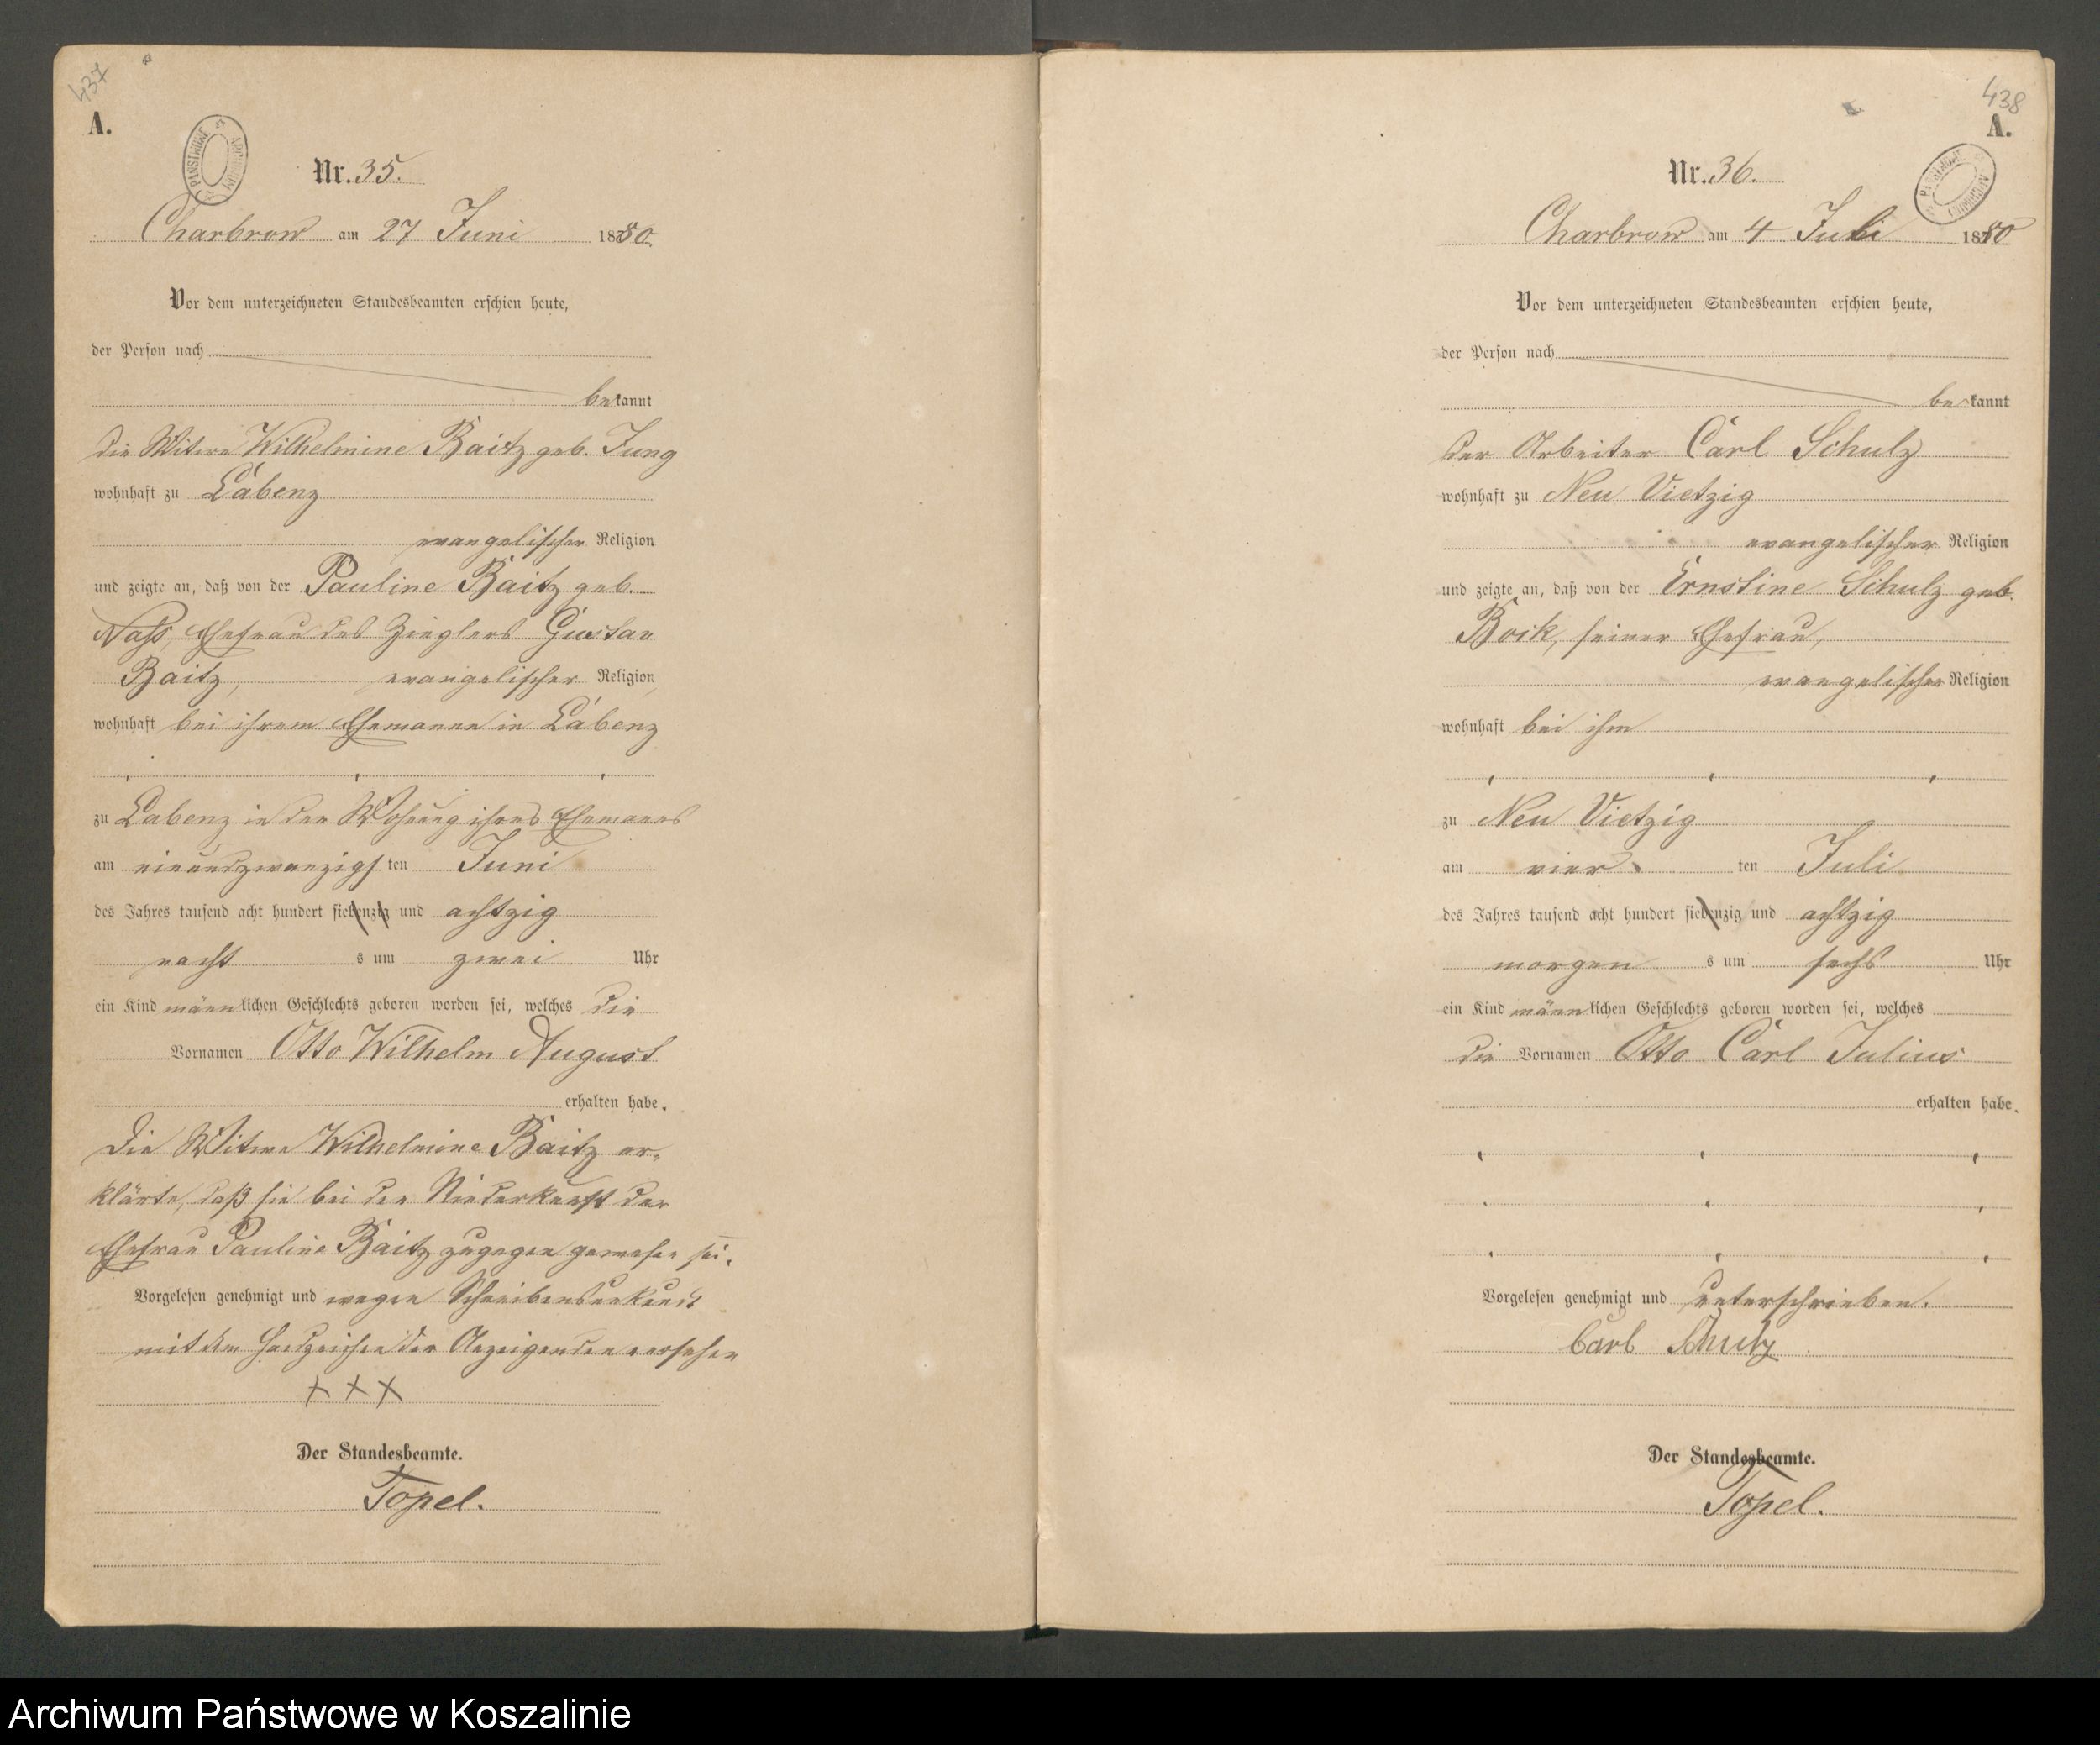 437
A.
PAŃSTWOWE ARCHIWUM
Nr. 35.
Charbrow am 27 Juni 1880.
Vor dem unterzeichneten Standesbeamten erschien heute,
der Person nach
bekannt
die Witwe Wilhelmine Baitz geb. Jung
wohnhaft zu Labenz
evangelischer Religion
und zeigte an, daß von der Pauline Baitz geb.
Nass, Ehefrau des Zieglers Gustav
Baitz, evangelischer Religion,
wohnhaft bei ihrem Ehemanne in Labenz
zu Labenz in der Wohnung ihres Ehemanns
am einundzwanzigsten Juni
des Jahres tausend acht hundert siebenzig und achtzig
nachts um zwei Uhr
ein Kind männlichen Geschlechts geboren worden sei, welches die
Vornamen Otto Wilhelm August
erhalten habe.
Die Witwe Wilhelmine Baitz er-
klärte, daß sie bei der Niederkunft der
Ehefrau Pauline Baitz zugegen gewesen sei.
Vorgelesen genehmigt und wegen Schreibensunkunde
mit dem Handzeichen der Anzeigenden versehen
+++
Der Standesbeamte.
Topel.
438
A.
Nr. 36.
Charbrow am 4 Juli 1880
Vor dem unterzeichneten Standesbeamten erschien heute,
der Person nach
bekannt
der Arbeiter Carl Schulz
wohnhaft zu Neu Vietzig
evangelischer Religion
und zeigte an, daß von der Ernstine Schulz geb.
Bock, seiner Ehefrau,
evangelischer Religion
wohnhaft bei ihm
zu Neu Vietzig
am vierten Juli
des Jahres tausend acht hundert siebenzig und achtzig
morgens um sechs Uhr
ein Kind männlichen Geschlechts geboren worden sei, welches
die Vornamen Otto Carl Julius
erhalten habe.
Vorgelesen genehmigt und unterschrieben.
Carl Schulz
Der Standesbeamte.
Topel.
Archiwum Państwowe w Koszalinie